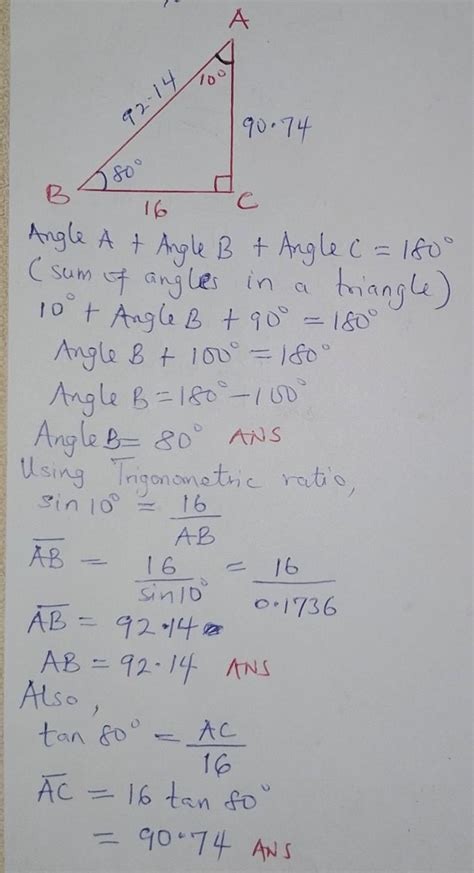 A
10°
92.14
90.74
80°
B
16
C
Angle A + Angle B + Angle C = 180°
(sum of angles in a triangle)
10° + Angle B + 90° = 180°
Angle B + 100° = 180°
Angle B = 180° - 100°
Angle B = 80° ANS
Using Trigonometric ratio,
sin 10° = 16
AB
AB = 16 = 16
sin 10° 0.1736
AB = 92.14
AB = 92.14 ANS
Also,
tan 80° = AC
16
AC = 16 tan 80°
= 90.74 ANS